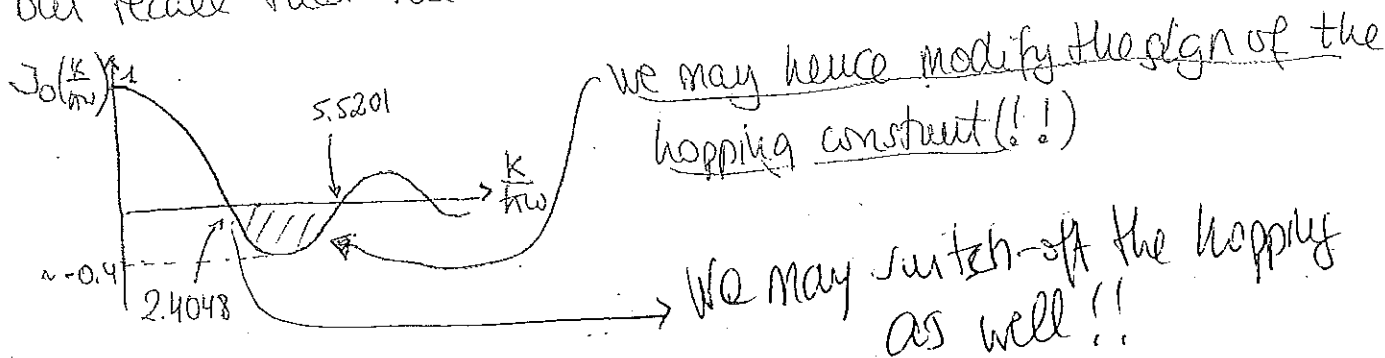 but recall that
J₀(K/ħω)
1
5.5201
K/ħω
~-0.4
2.4048
we may hence modify the sign of the
hopping constant(!!)
We may switch-off the hopping
as well!!